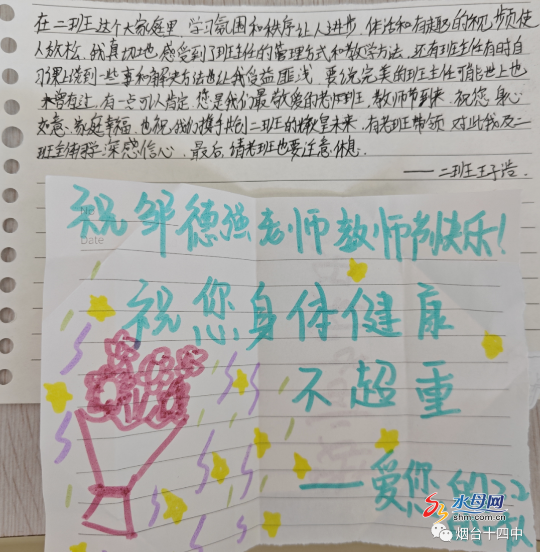 在二班这个大家庭里,学习氛围和秩序让人进步,体活和有趣的视频使
人放松,我真切地感受到了班主任的管理方式和教学方法,还有班主任有时自
习课上谈到一些事和解决方法也让我受益匪浅,要说完美的班主任可能世上也
未曾有过,有一点可以肯定,您是我们最敬爱的老师班,教师节到来,祝您身心
如意,家庭幸福,也祝我们携手共创二班的辉煌未来,有老班带领,对此我及二
班全体同学深感信心,最后,请老班也要注意休息.
——二班王子浩.
No
Date
祝邹德强老师教师节快乐!
祝您身体健康
不超重
——爱您的22
水母网
shm.com.cn
烟台十四中